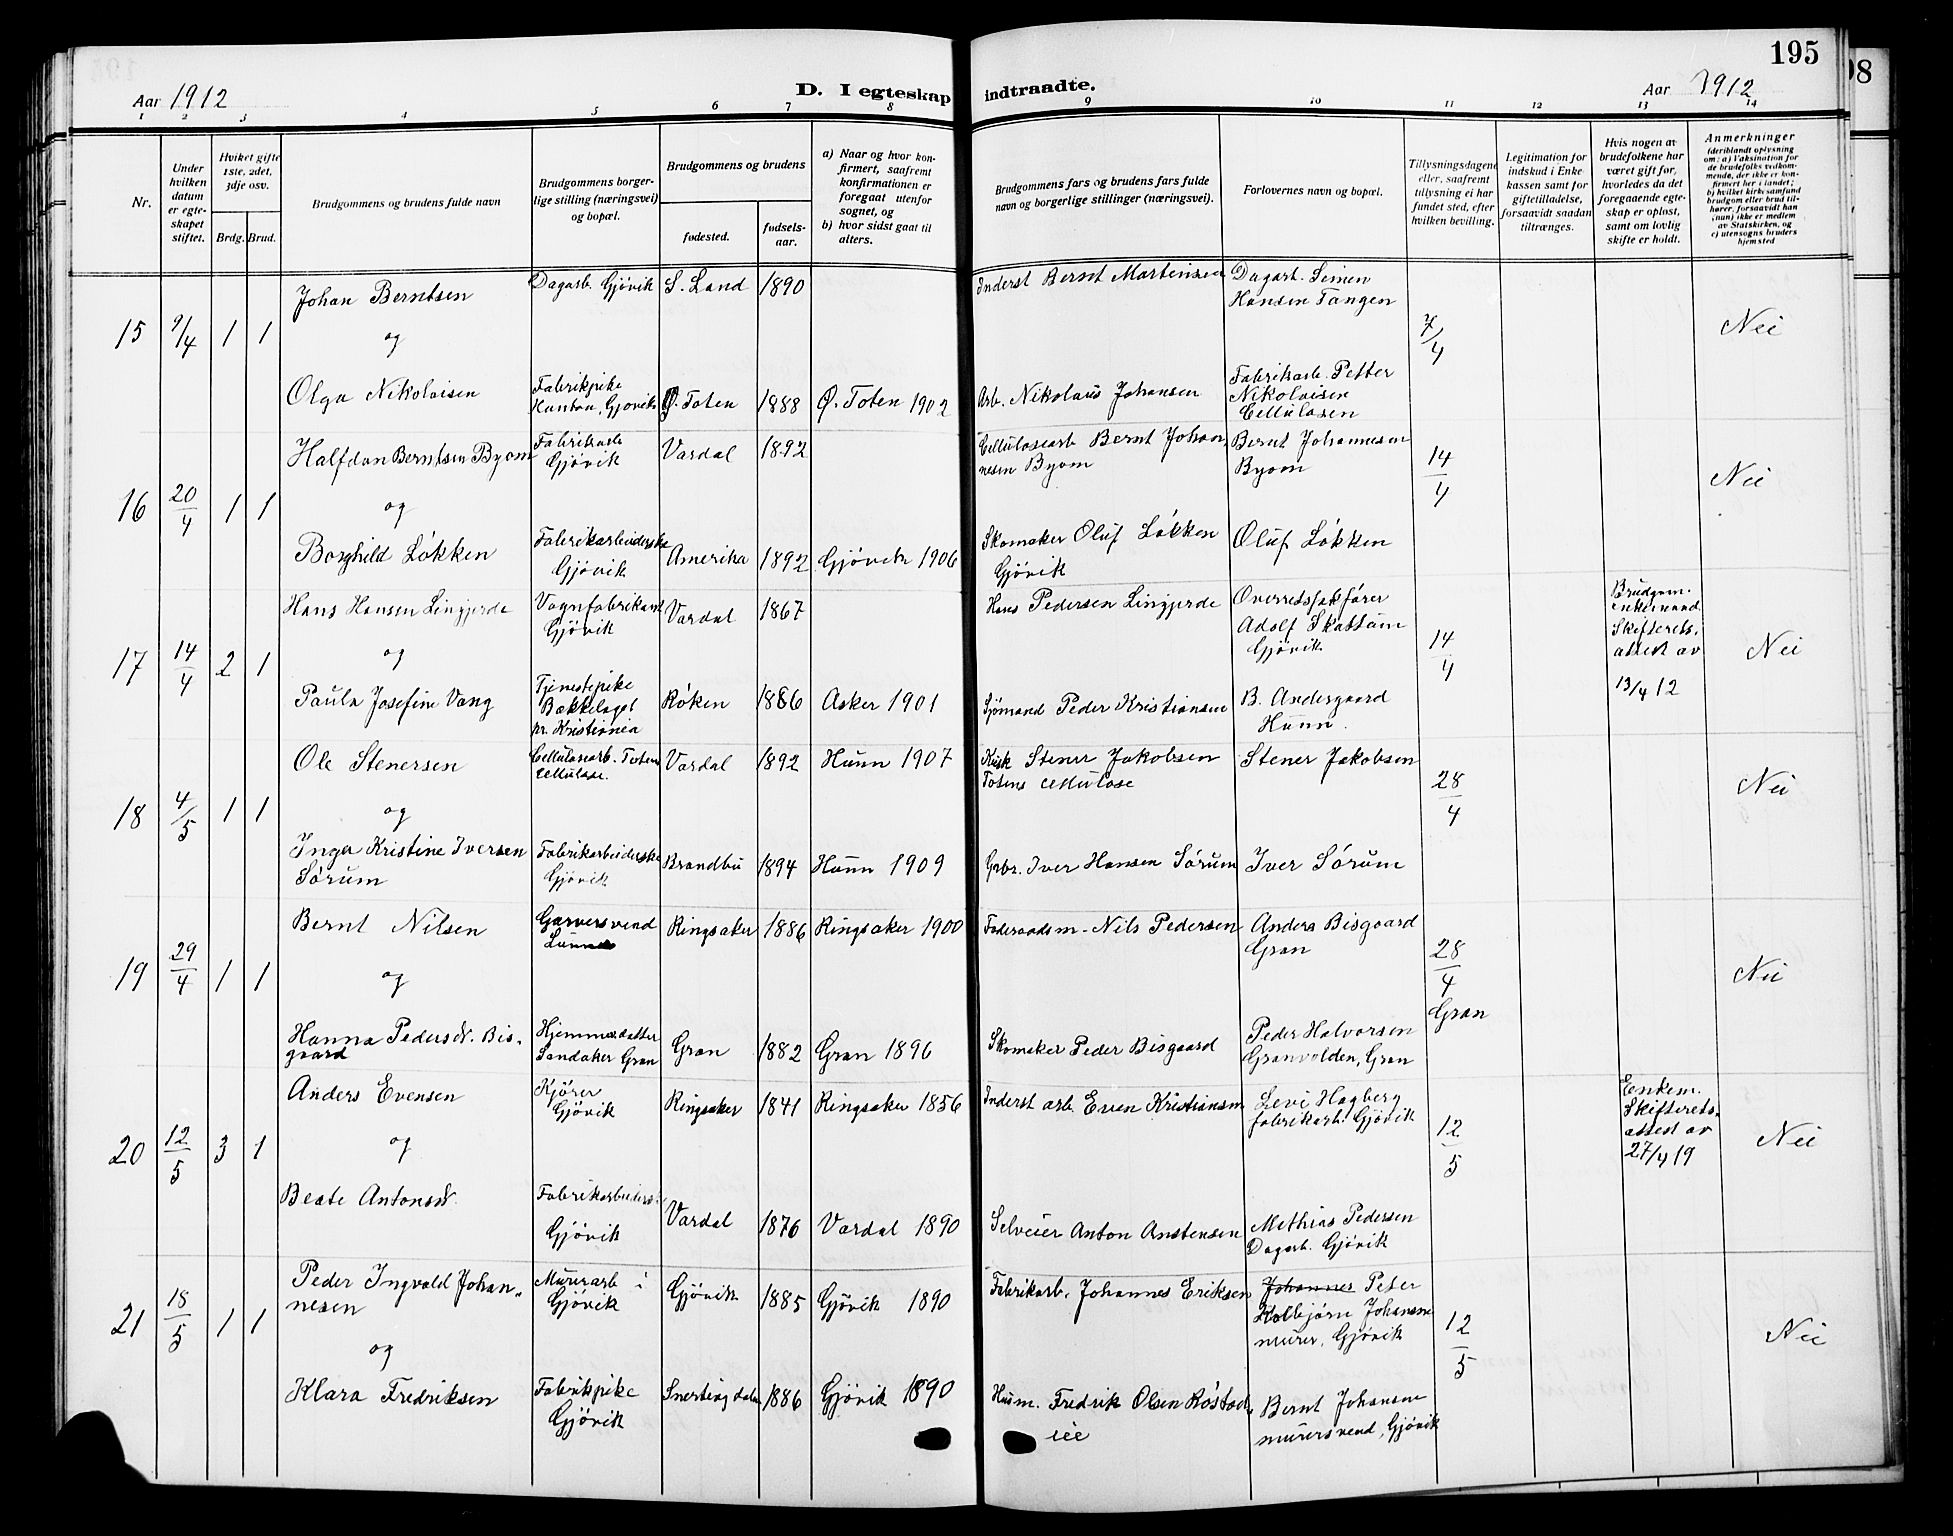 195
Aar 1912
D. I egteskap indtraadte.
Aar 1912
1 2 3 4 5 6 7 8 9 10 11 12 13 14
Nr.
Under hvilken datum er egteskapet stiftet.
Hvilket gifte 1ste, 2det, 3dje osv.
Brdg. Brud.
Brudgommens og brudens fulde navn
Brudgommens borgerlige stilling (næringsvei) og bopæl.
Brudgommens og brudens
fødested.
fødselsaar.
a) Naar og hvor konfirmert, saafremt konfirmationen er foregaat utenfor sognet, og
b) hvor sidst gaat til alters.
Brudgommens fars og brudens fars fulde navn og borgerlige stillinger (næringsvei).
Forlovernes navn og bopæl.
Tillysningsdagene eller, saafremt tillysning ei har fundet sted, efter hvilken bevilling.
Legitimation for indskud i Enkekassen samt for giftetilladelse, forsaavidt saadan tiltrænges.
Hvis nogen av brudefolkene har været gift før, hvorledes da det foregaaende egteskap er opløst, samt om lovlig skifte er holdt.
Anmerkninger
(deriblandt oplysning om: a) Vaksination for de brudefolks vedkommende, der ikke er konfirmert her i landet; b) hvilket kirkesamfund brudgom eller brud tilhører, forsaavidt han (hun) ikke er medlem av Statskirken, og c) utensogns bruders hjemsted
15 9/4 1 1 Johan Berntsen Dagarb. Gjövik S. Land 1890 Inderst Bernt Martinsen Dagarb. Simen Hansen Tangen 7/4 Nei
og
Olga Nikolaisen Fabrikpike Gjövik Ø. Toten 1888 Ø. Toten 1902 Arb. Nikolaus Johansen Fabrikarb. Petter Nikolaisen Cellulosen
16 20/4 1 1 Halfdan Berntsen Byom Fabrikarb Gjövik Vardal 1892 Cellulosearb Bernt Johannesen Byom Bernt Johannesen Byom 14/4 Nei
og
Borghild Lökken Fabrikarbeiderske Gjövik Amerika 1892 Gjövik 1906 Skomaker Oluf Lökken Gjövik Oluf Lökken
17 14/4 2 1 Hans Hansen Lingjerde Vognfabrikant Gjövik Vardal 1867 Hans Pedersen Lingjerde Overretssakförer Adolf Skattum Gjövik 14/4 Brudgom. enkemand. Skifterets. attest av 13/4 12 Nei
og
Paula Josefine Vang Tjenestepike Bækkelaget pr. Kristiania Röken 1886 Asker 1901 Sjömand Peder Kristiansen B. Andersgaard Hunn.
18 4/5 1 1 Ole Stenersen Cellulosearb. Toten Cellulose. Vardal 1892 Hunn 1907 Stener Jakobsen Totens Cellulose Stener Jakobsen 28/4 Nei
og
Inga Kristine Iversen Sörum Fabrikarbeiderske Gjövik Brandbu 1894 Hunn 1909 Grbr. Iver Hansen Sörum Iver Sörum
19 29/4 1 1 Bernt Nilsen Garversvend Lunner Ringsaker 1886 Ringsaker 1900 Föderaadsm. Nils Pedersen Anders Bisgaard Gran 28/4 Gran Nei
og
Hanna Pedersdr. Bisgaard Hjemmedatter Sandaker Gran Gran 1882 Gran 1896 Skomaker Peder Bisgaard Peder Halvorsen Granvolden, Gran
20 12/5 3 1 Anders Evensen Kjörer Gjövik Ringsaker 1841 Ringsaker 1856 Inderst arb. Even Kristiansen Levi Hagberg fabrikarb. Gjövik 12/5 Enkem. Skifterets. attest av 27/4 19 Nei
og
Beate Antonsdr. Fabrikarbeiders. Gjövik Vardal 1876 Vardal 1890 Selveier Anton Anstensen Mathias Pedersen Dagarb. Gjövik
21 18/5 1 1 Peder Ingvald Johannesen Murerarb i Gjövik Gjövik 1885 Gjövik 1890 Fabrikarb. Johannes Eriksen Johannes Peter Kolbjörn Johansen murer, Gjövik 12/5 Nei
og
Klara Fredriksen Fabrikpike Gjövik Snertingdalen 1886 Gjövik 1890 Husm. Fredrik Olsen Röstadeie Bernt Johansen murersvend, Gjövik